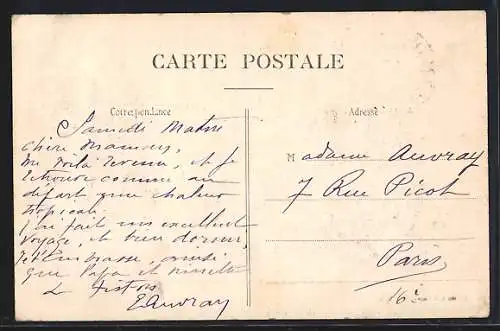 CARTE POSTALE
Correspondance
Adresse
Samedi Matin
Chère Maman,
Me voilà revenu, et je
retrouve comme au
départ une chaleur
tropicale.
J'ai fait un excellent
voyage, et bien dormi,
je t'embrasse, ainsi
que Papa et
Le fiston
EAuvray
Madame Auvray
7 Rue Picot
Paris
16e